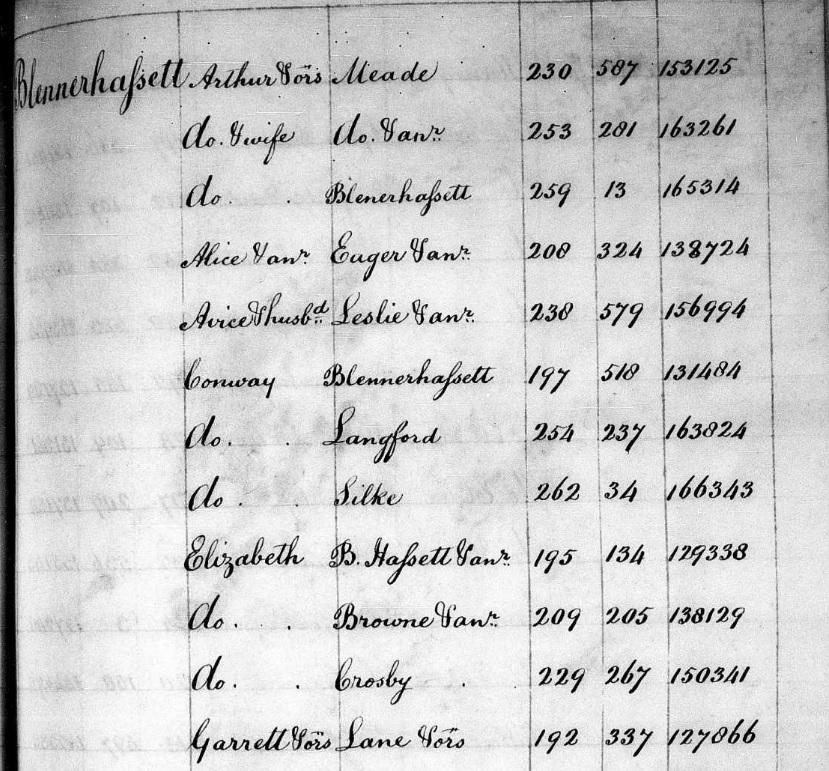 Blennerhaſsett Arthur & ors Meade 230 587 153125
do. & wife do. & anr. 253 281 163261
do . Blenerhaſsett 259 13 165314
Alice & anr. Euger & anr. 208 324 138724
Avice & husbd. Leslie & anr. 238 579 156994
Conway Blennerhaſsett 197 518 131484
do. . Langford 254 237 163824
do . . Silke 262 34 166343
Elizabeth B. Haſsett & anr. 195 134 129338
do. . Browne & anr. 209 205 138129
do. . Crosby . 229 267 150341
Garrett & ors Lane & ors 192 337 127866